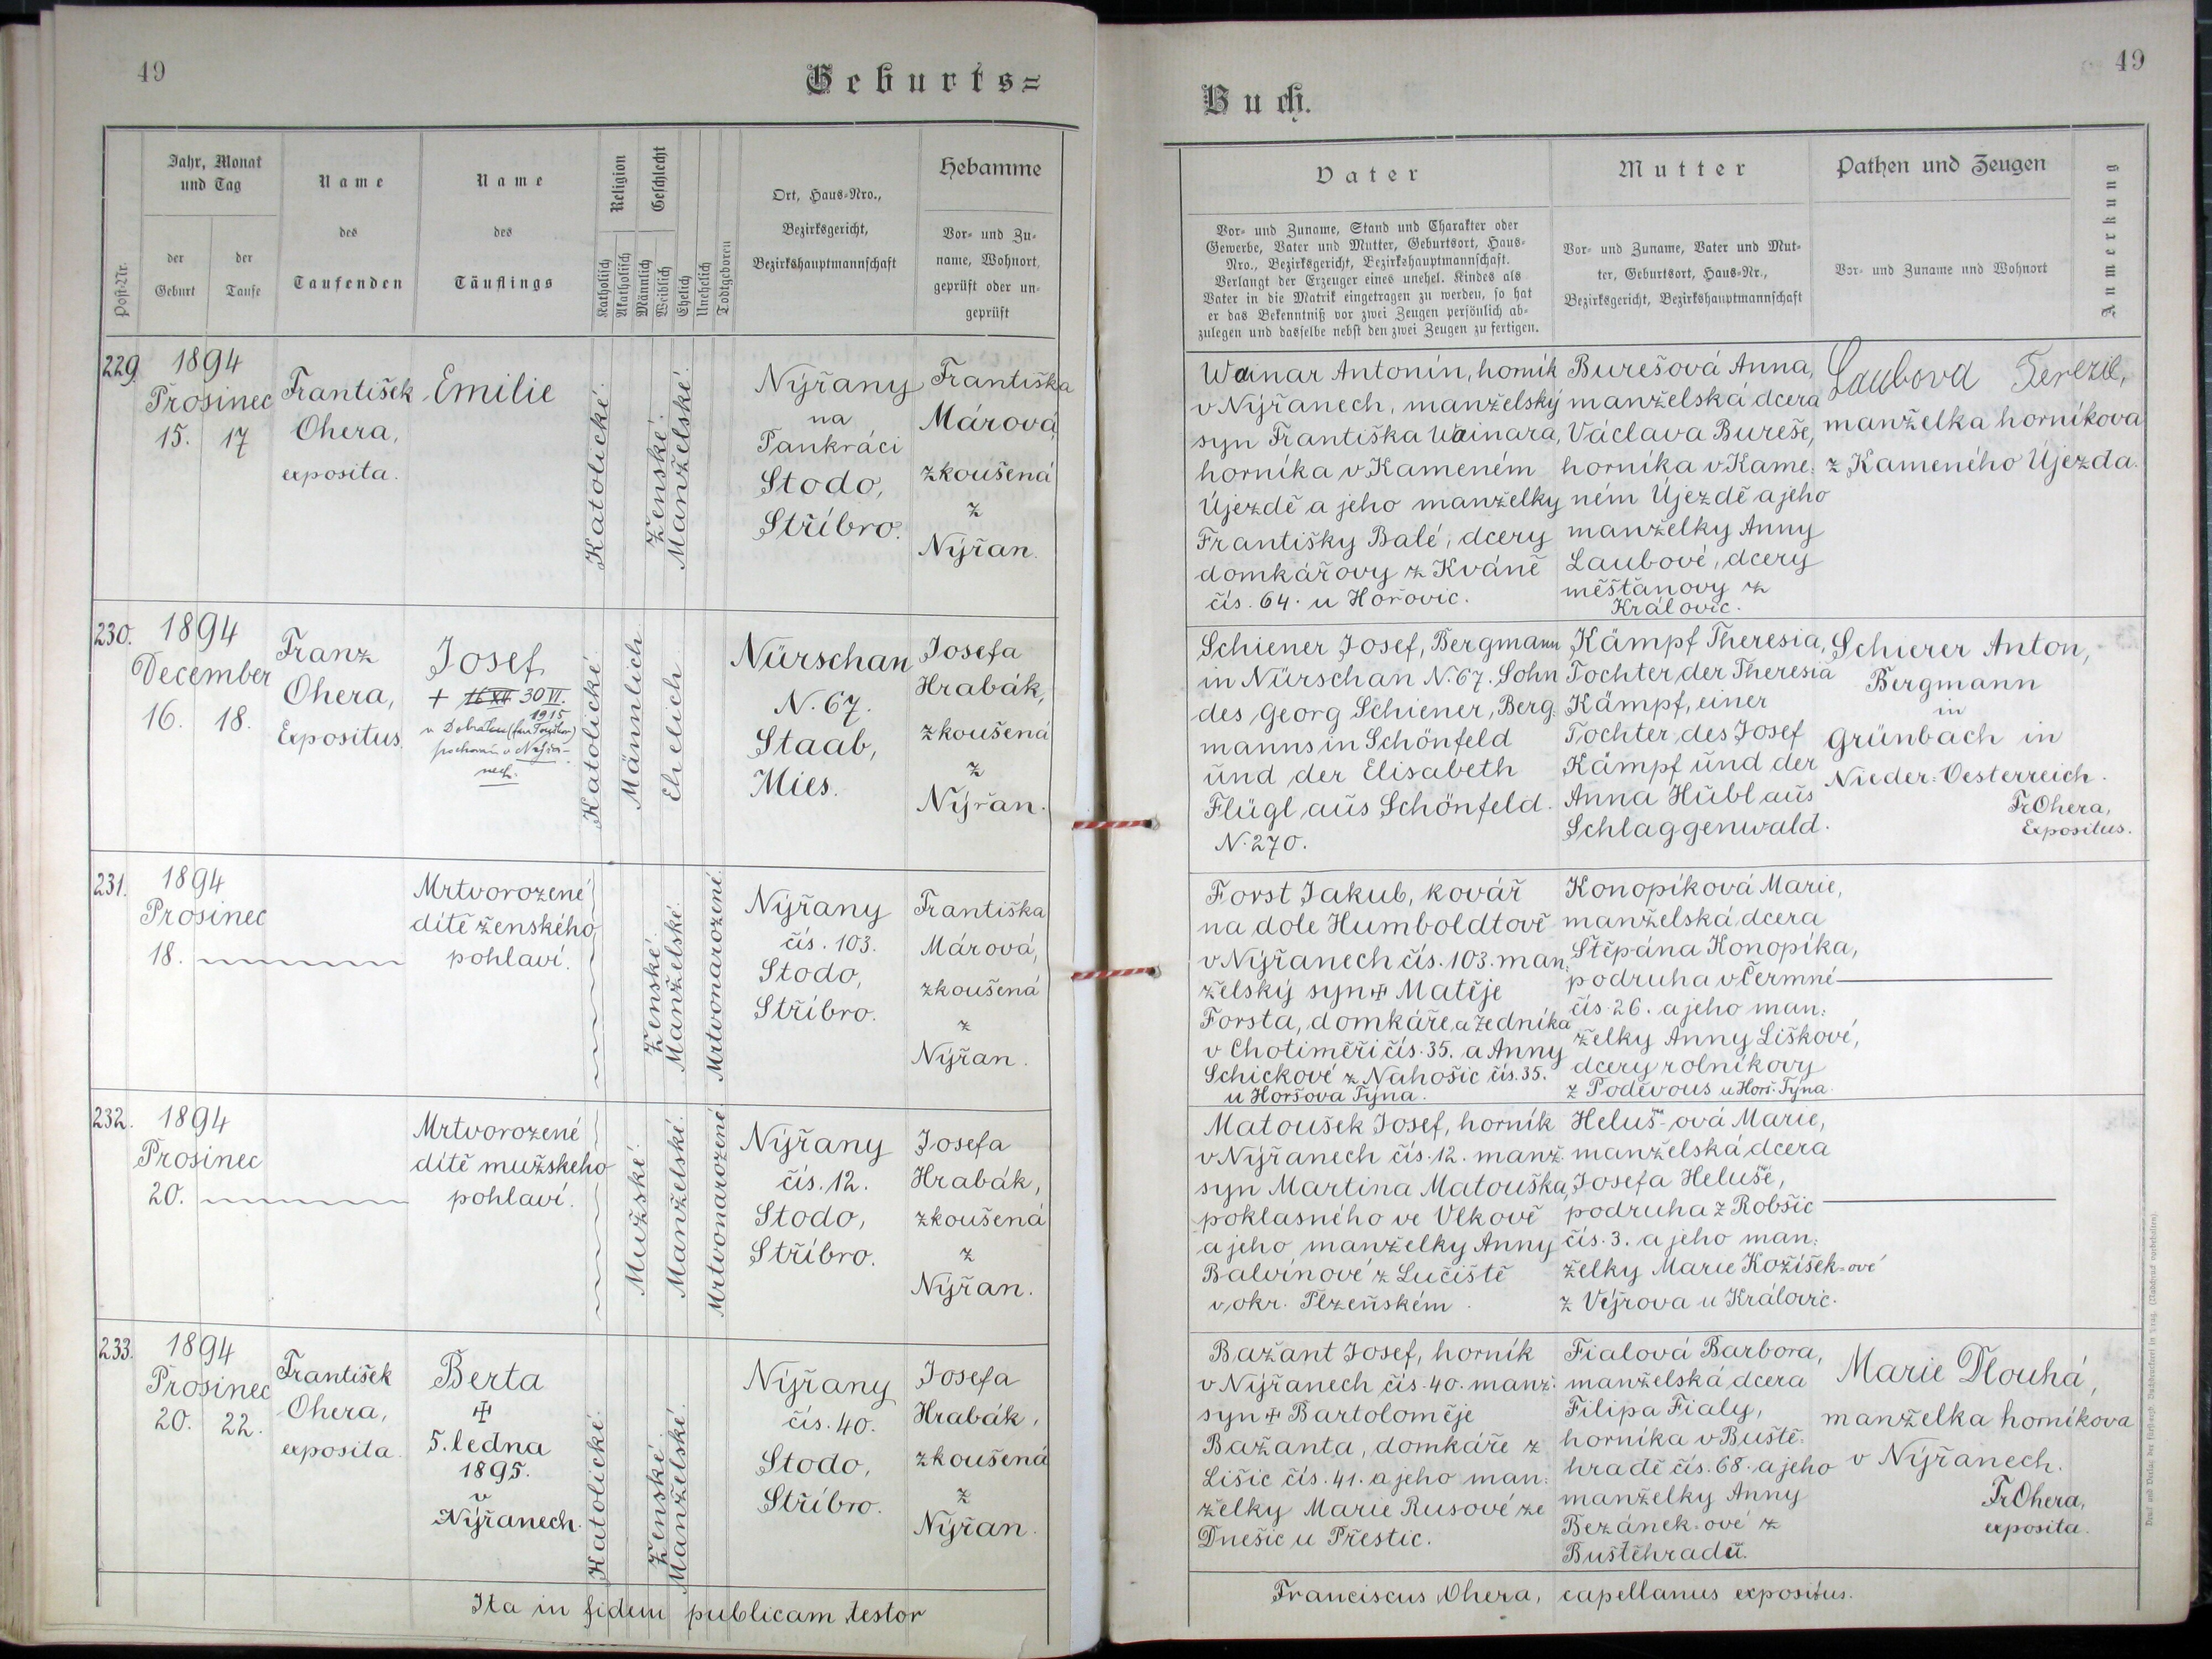 49
Geburts=
Post-Nr.
Jahr, Monat
und Tag
der
Geburt
der
Taufe
Name
des
Taufenden
Name
des
Täuflings
Religion
Katholisch
Akatholisch
Geschlecht
Männlich
Weiblich
Ehelich
Unehelich
Todtgeboren
Ort, Haus-Nro.,
Bezirksgericht,
Bezirkshauptmannschaft
Hebamme
Vor- und Zu-
name, Wohnort,
geprüft oder un-
geprüft
229.
1894
Prosinec
15. 17
František
Ohera,
exposita.
Emilie
Katolické.
Ženské.
Manželské.
Nýřany
na
Pankráci
Stodo,
Stříbro.
Františka
Márová,
zkoušená
z
Nýřan.
230.
1894
December
16. 18.
Franz
Ohera,
Expositus.
Josef
+ 16 XII 30 VI.
1915
pochován v Nýřa-
nech.
Katolické.
Männlich
Ehelich
Nürschan
N. 67.
Staab,
Mies.
Josefa
Hrabák,
zkoušená
z
Nýřan.
231.
1894
Prosinec
18.
Mrtvorozené
dítě ženského
pohlaví.
Ženské.
Manželské.
Mrtvonarozené.
Nýřany
čís. 103.
Stodo,
Stříbro.
Františka
Márová,
zkoušená
z
Nýřan.
232.
1894
Prosinec
20.
Mrtvorozené
dítě mužského
pohlaví.
Mužské.
Manželské.
Mrtvonarozené.
Nýřany
čís. 12.
Stodo,
Stříbro.
Josefa
Hrabák,
zkoušená
z
Nýřan.
233.
1894
Prosinec
20. 22.
František
Ohera,
exposita.
Berta
✠
5. ledna
1895.
v
Nýřanech.
Katolické.
Ženské.
Manželské.
Nýřany
čís. 40.
Stodo,
Stříbro.
Josefa
Hrabák,
zkoušená
z
Nýřan.
Ita in fidem publicam testor
49
Buch.
Vater
Vor- und Zuname, Stand und Charakter oder
Gewerbe, Vater und Mutter, Geburtsort, Haus-
Nro., Bezirksgericht, Bezirkshauptmannschaft.
Verlangt der Erzeuger eines unehel. Kindes als
Vater in die Matrik eingetragen zu werden, so hat
er das Bekenntniß vor zwei Zeugen persönlich ab-
zulegen und dasselbe nebst den zwei Zeugen zu fertigen.
Mutter
Vor- und Zuname, Vater und Mut-
ter, Geburtsort, Haus-Nr.,
Bezirksgericht, Bezirkshauptmannschaft
Pathen und Zeugen
Vor- und Zuname und Wohnort
Anmerkung
Wainar Antonín, horník
v Nýřanech, manželský
syn Františka Wainara,
horníka v Kameném
Újezdě a jeho manželky
Františky Balé, dcery
domkářovy z Kváně
čís. 64. u Hořovic.
Burešová Anna,
manželská dcera
Václava Bureše,
horníka v Kame:
ném Újezdě a jeho
manželky Anny
Laubové, dcery
měšťanovy z
Královic.
Laubova Terezie,
manželka horníkova
z Kameného Újezda.
Schiener Josef, Bergmann
in Nürschan N. 67. Sohn
des Georg Schiener, Berg:
manns in Schönfeld
und der Elisabeth
Flügl aus Schönfeld.
N. 270.
Kämpf Theresia,
Tochter der Theresia
Kämpf, einer
Tochter des Josef
Kämpf und der
Anna Hübl aus
Schlaggenwald.
Schierer Anton,
Bergmann
in
Grünbach in
Nieder-Oesterreich.
Fr Ohera,
Expositus.
Forst Jakub, kovář
na dole Humboldtově
v Nýřanech čís. 103. man:
želský syn ✠ Matěje
Forsta, domkáře, a zedníka
v Chotiměři čís. 35. a Anny
Schickové z Nahošic čís. 35.
u Horšova Týna.
Konopíková Marie,
manželská dcera
Štěpána Konopíka,
podruha v Čermné
čís. 26. a jeho man:
želky Anny Liškové,
dcery rolníkovy
z Poděvous u Horš. Týna.
Matoušek Josef, horník
v Nýřanech čís. 12. manž.
syn Martina Matouška,
poklasného ve Vlkově
a jeho manželky Anny
Balvínové z Lučiště
v okr. Plzeňském.
Heluš-ová Marie,
manželská dcera
Josefa Heluše,
podruha z Robšic
čís. 3. a jeho man:
želky Marie Kožíšek-ové
z Vejrova u Královic.
Bažant Josef, horník
v Nýřanech čís. 40. manž.
syn ✠ Bartoloměje
Bažanta, domkáře z
Lišic čís. 41. a jeho man:
želky Marie Rusové ze
Dnešic u Přestic.
Fialová Barbora,
manželská dcera
Filipa Fialy,
horníka v Buště:
hradě čís. 68. a jeho
manželky Anny
Bezánek-ové z
Buštěhradu.
Marie Dlouhá,
manželka horníkova
v Nýřanech.
Fr Ohera,
exposita.
Franciscus Ohera, capellanus expositus.